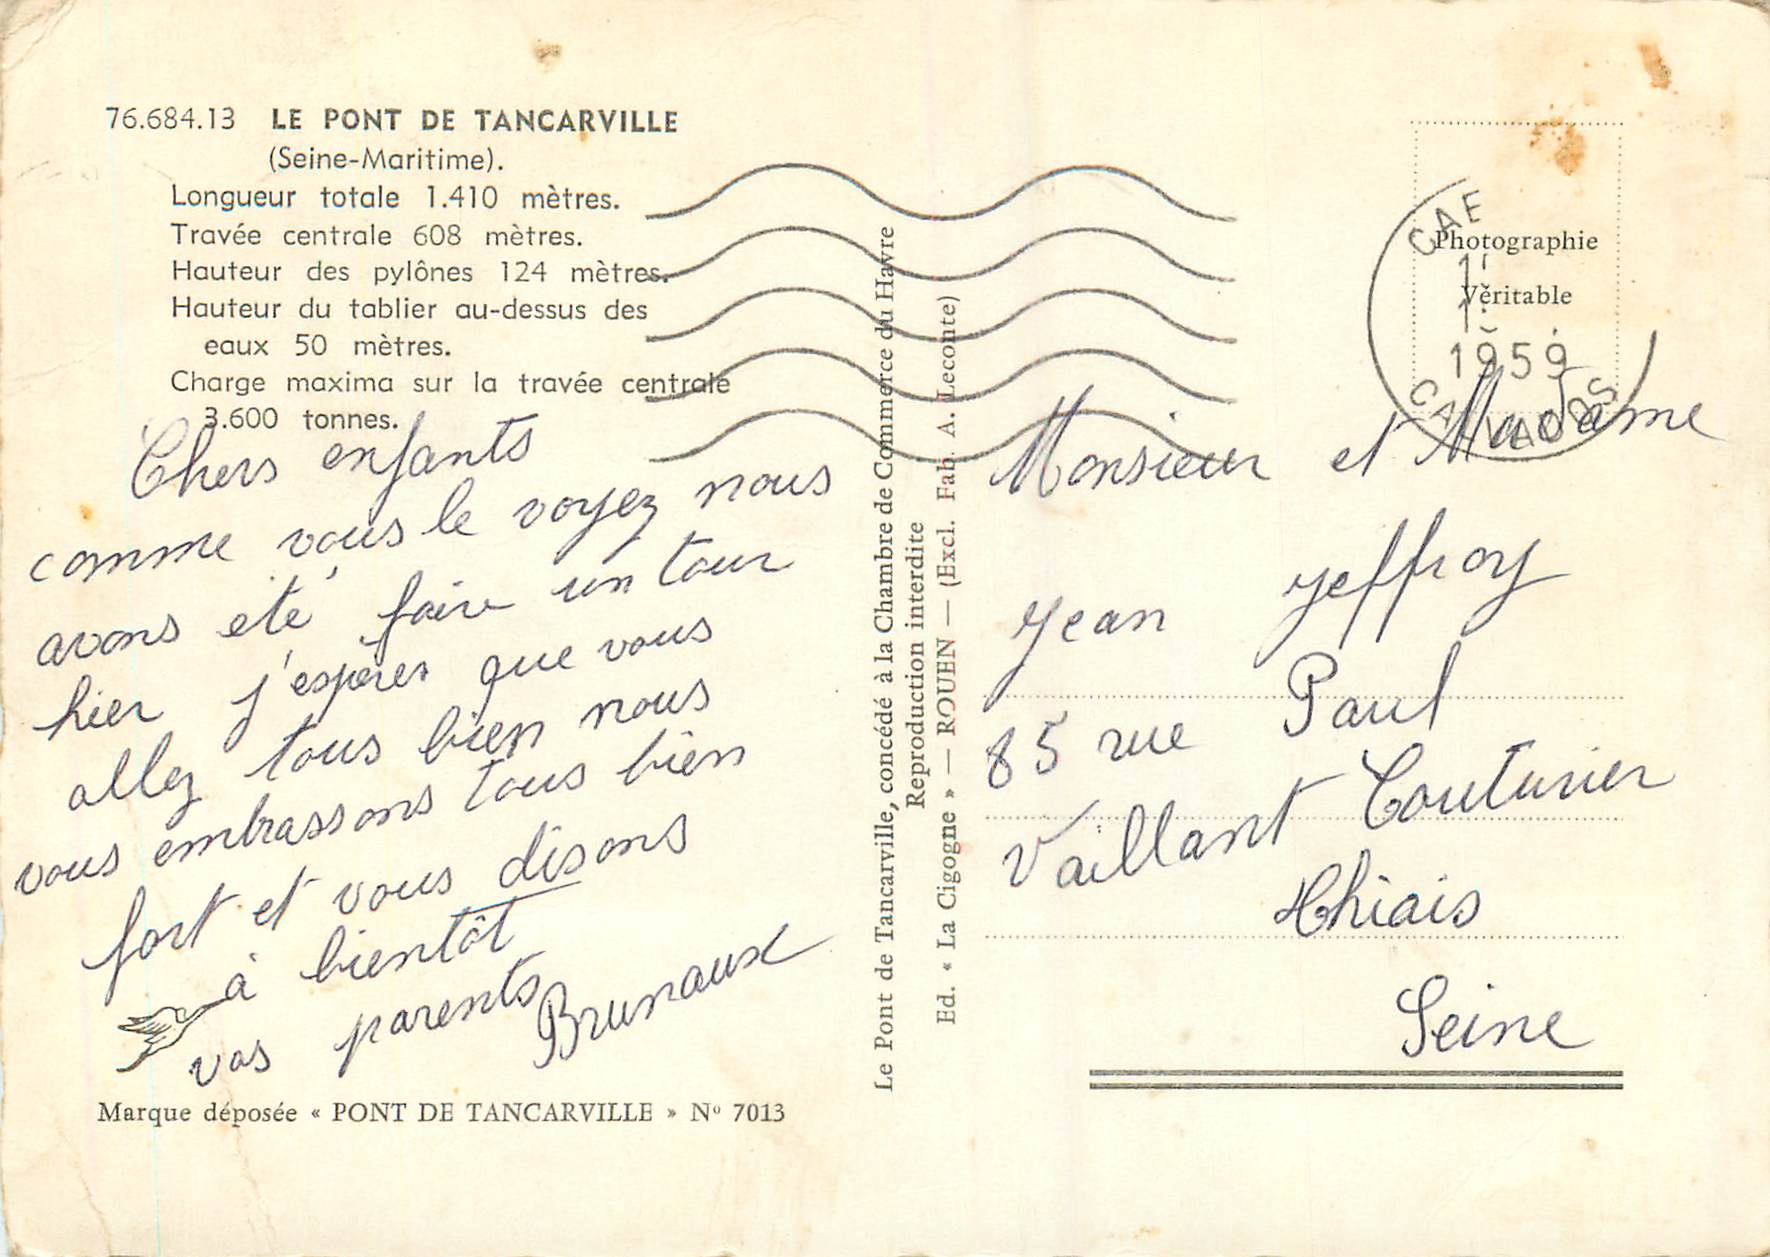 76.684.13 LE PONT DE TANCARVILLE
(Seine-Maritime).
Longueur totale 1.410 mètres.
Travée centrale 608 mètres.
Hauteur des pylônes 124 mètres.
Hauteur du tablier au-dessus des
eaux 50 mètres.
Charge maxima sur la travée centrale
3.600 tonnes.
Chers enfants
comme vous le voyez nous
avons eté faire un tour
hier j'espères que vous
allez tous bien nous
vous embrassons tous bien
fort et vous disons
à bientôt
vos parents
Brunaux
Marque déposée « PONT DE TANCARVILLE » Nº 7013
Le Pont de Tancarville, concédé à la Chambre de Commerce du Havre
Reproduction interdite
Ed. « La Cigogne » — ROUEN — (Excl. Fab. A. Leconte)
Photographie
Véritable
CAE
1959
CALVADOS
Monsieur et Madame
Jean Jeffroy
85 rue Paul
Vaillant Couturier
Thiais
Seine